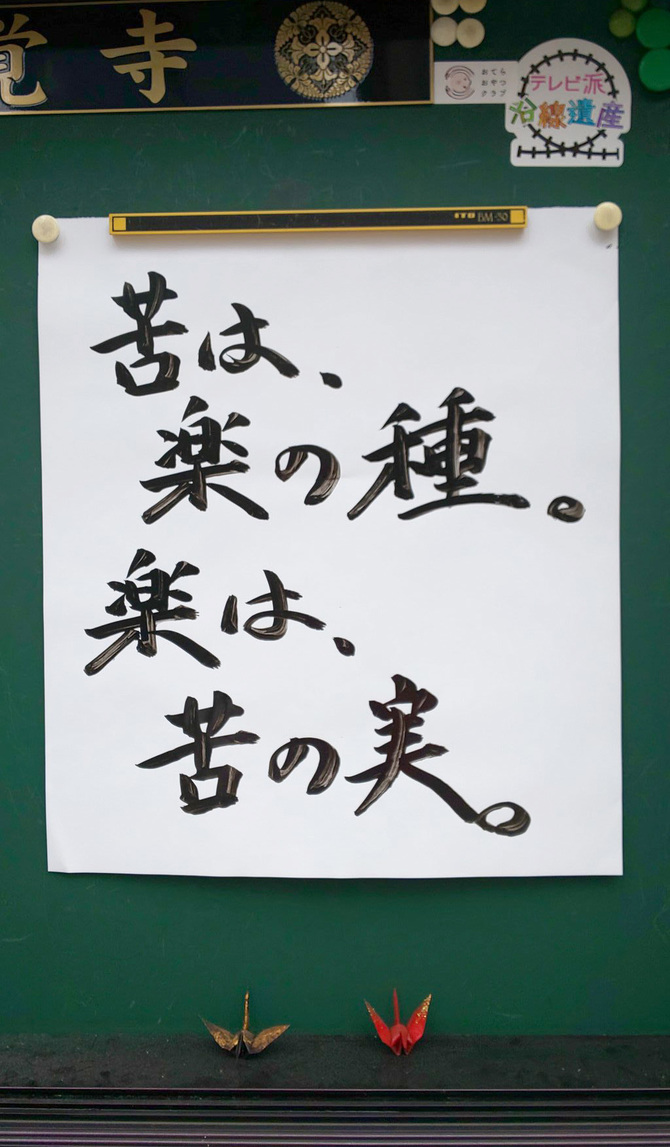 覚寺
おてら
おやつ
クラブ
テレビ派
沿線遺産
ITO BM-50
苦は、
楽の種。
楽は、
苦の実。